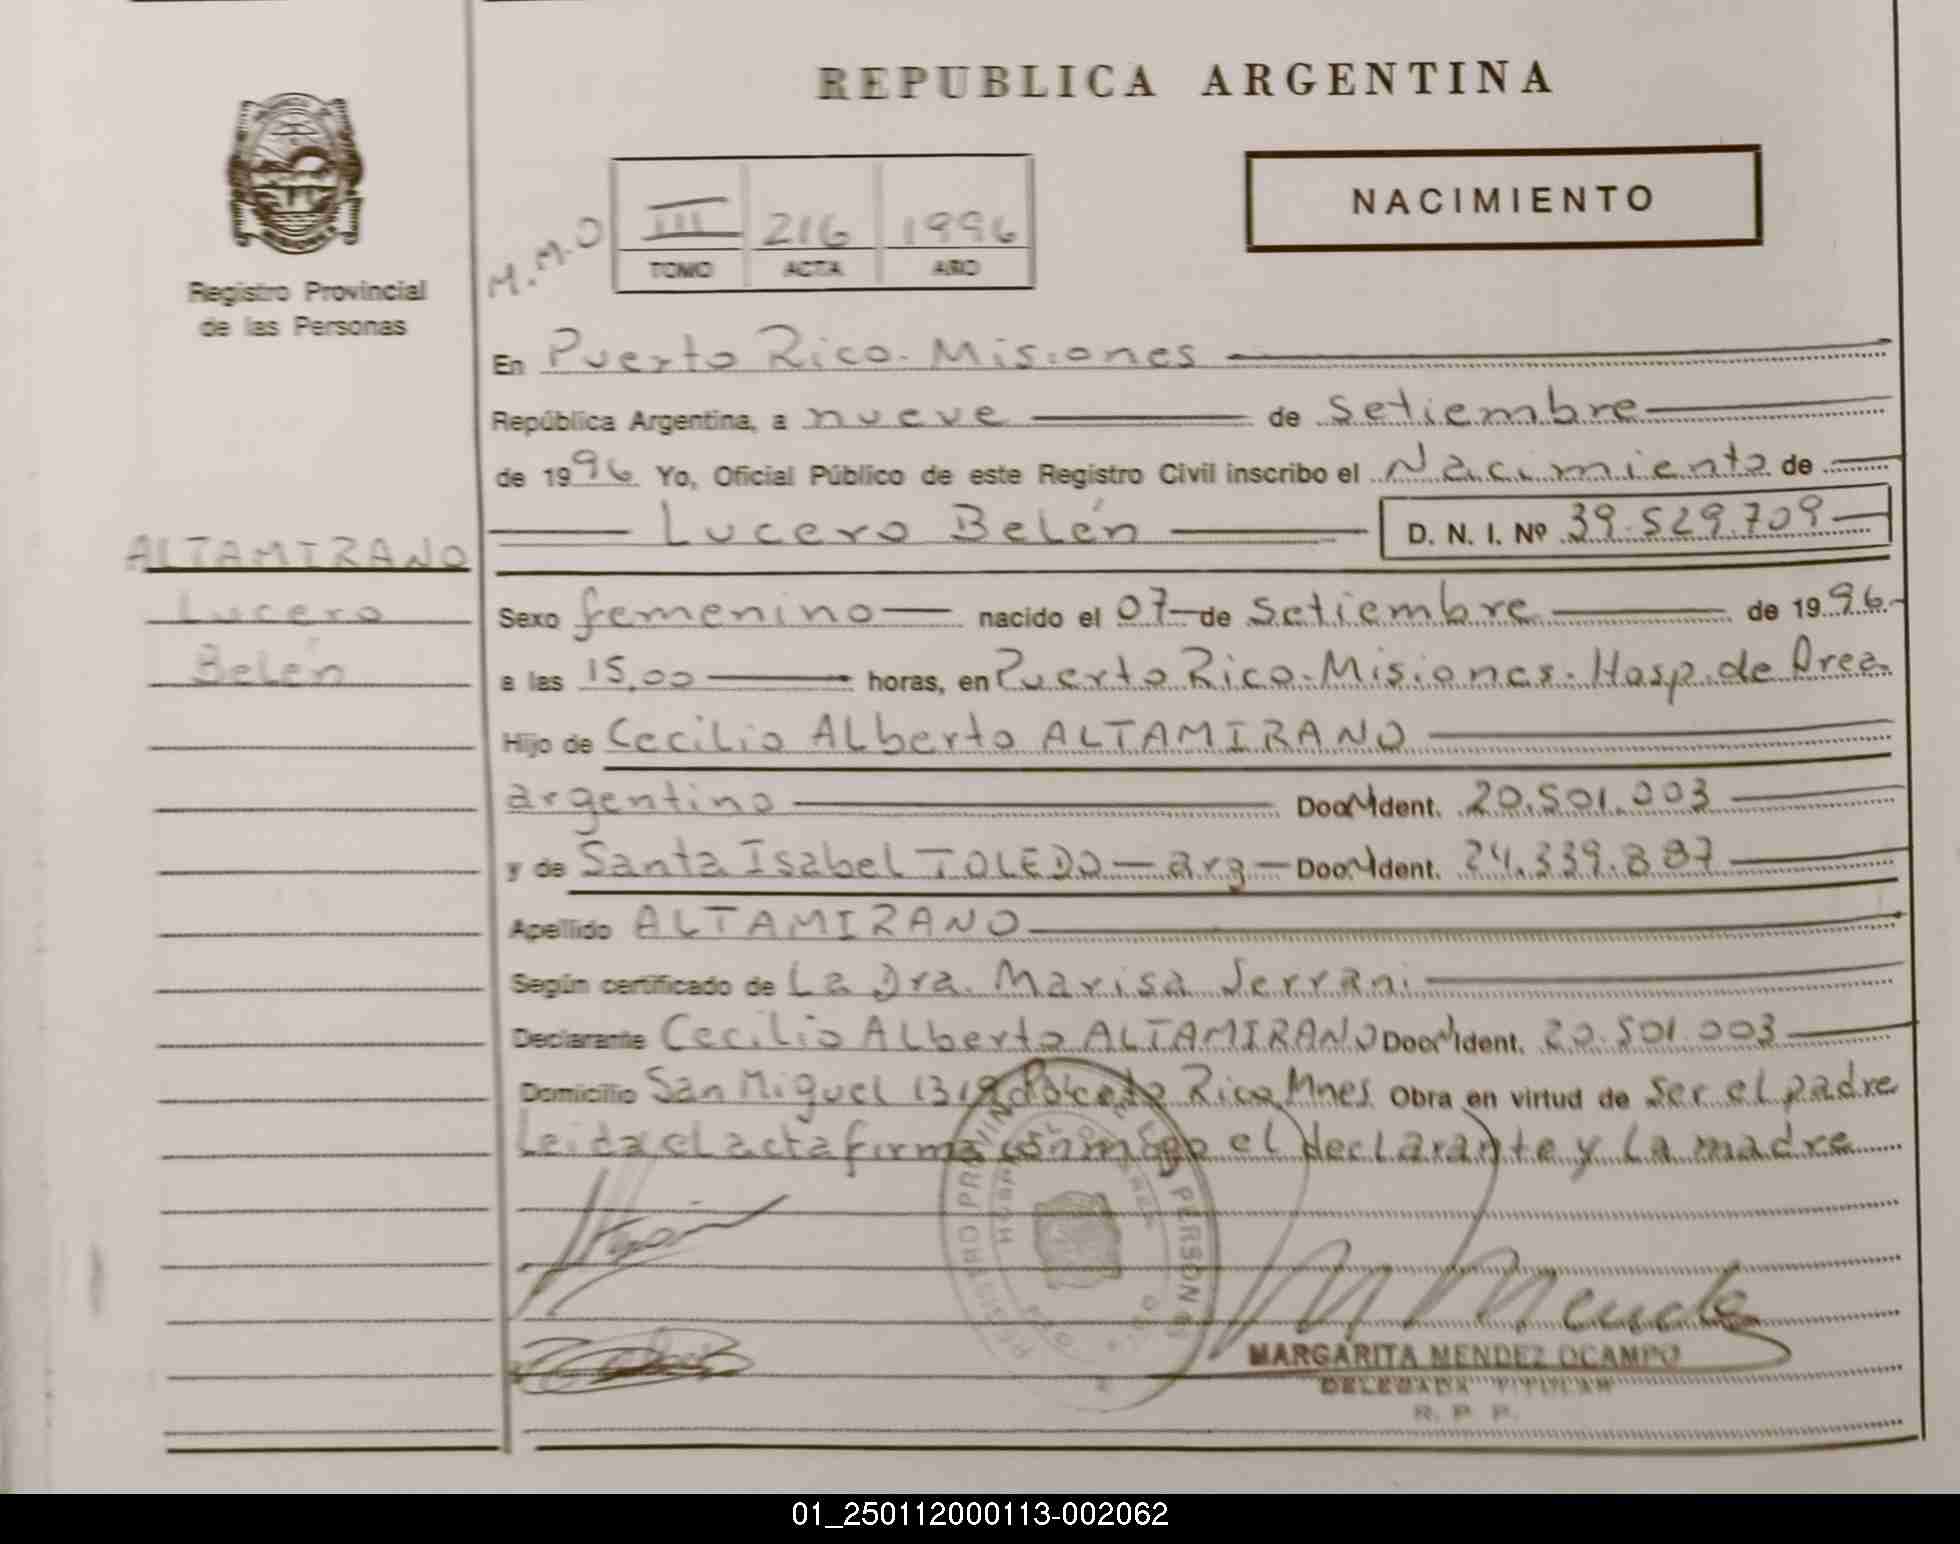 REPUBLICA ARGENTINA
NACIMIENTO
M.M.O
III 216 1996
TOMO ACTA AÑO
Registro Provincial
de las Personas
En Puerto Rico. Misiones
República Argentina, a nueve de Setiembre
de 1996 Yo, Oficial Público de este Registro Civil inscribo el Nacimiento de
Lucero Belén D. N. I. Nº 39.529.709
ALTAMIRANO
Lucero
Belén
Sexo femenino nacido el 07 de Setiembre de 1996
a las 15,00 horas, en Puerto Rico. Misiones. Hosp. de Area
Hijo de Cecilio Alberto ALTAMIRANO
argentino Doc. Ident. 20.501.003
y de Santa Isabel TOLEDO arg Doc. Ident. 24.339.887
Apellido ALTAMIRANO
Según certificado de La Dra. Marisa Serrani
Declarante Cecilio Alberto ALTAMIRANO Doc. Ident. 20.501.003
Domicilio San Miguel Rico Mnes Obra en virtud de Ser el padre
Leida el acta firma conmigo el declarante y la madre
REGISTRO PROVINCIAL DE LAS PERSONAS
HOSPITAL DE AREA
M Mendez
MARGARITA MENDEZ OCAMPO
DELEGADA TITULAR
R. P. P.
01_250112000113-002062